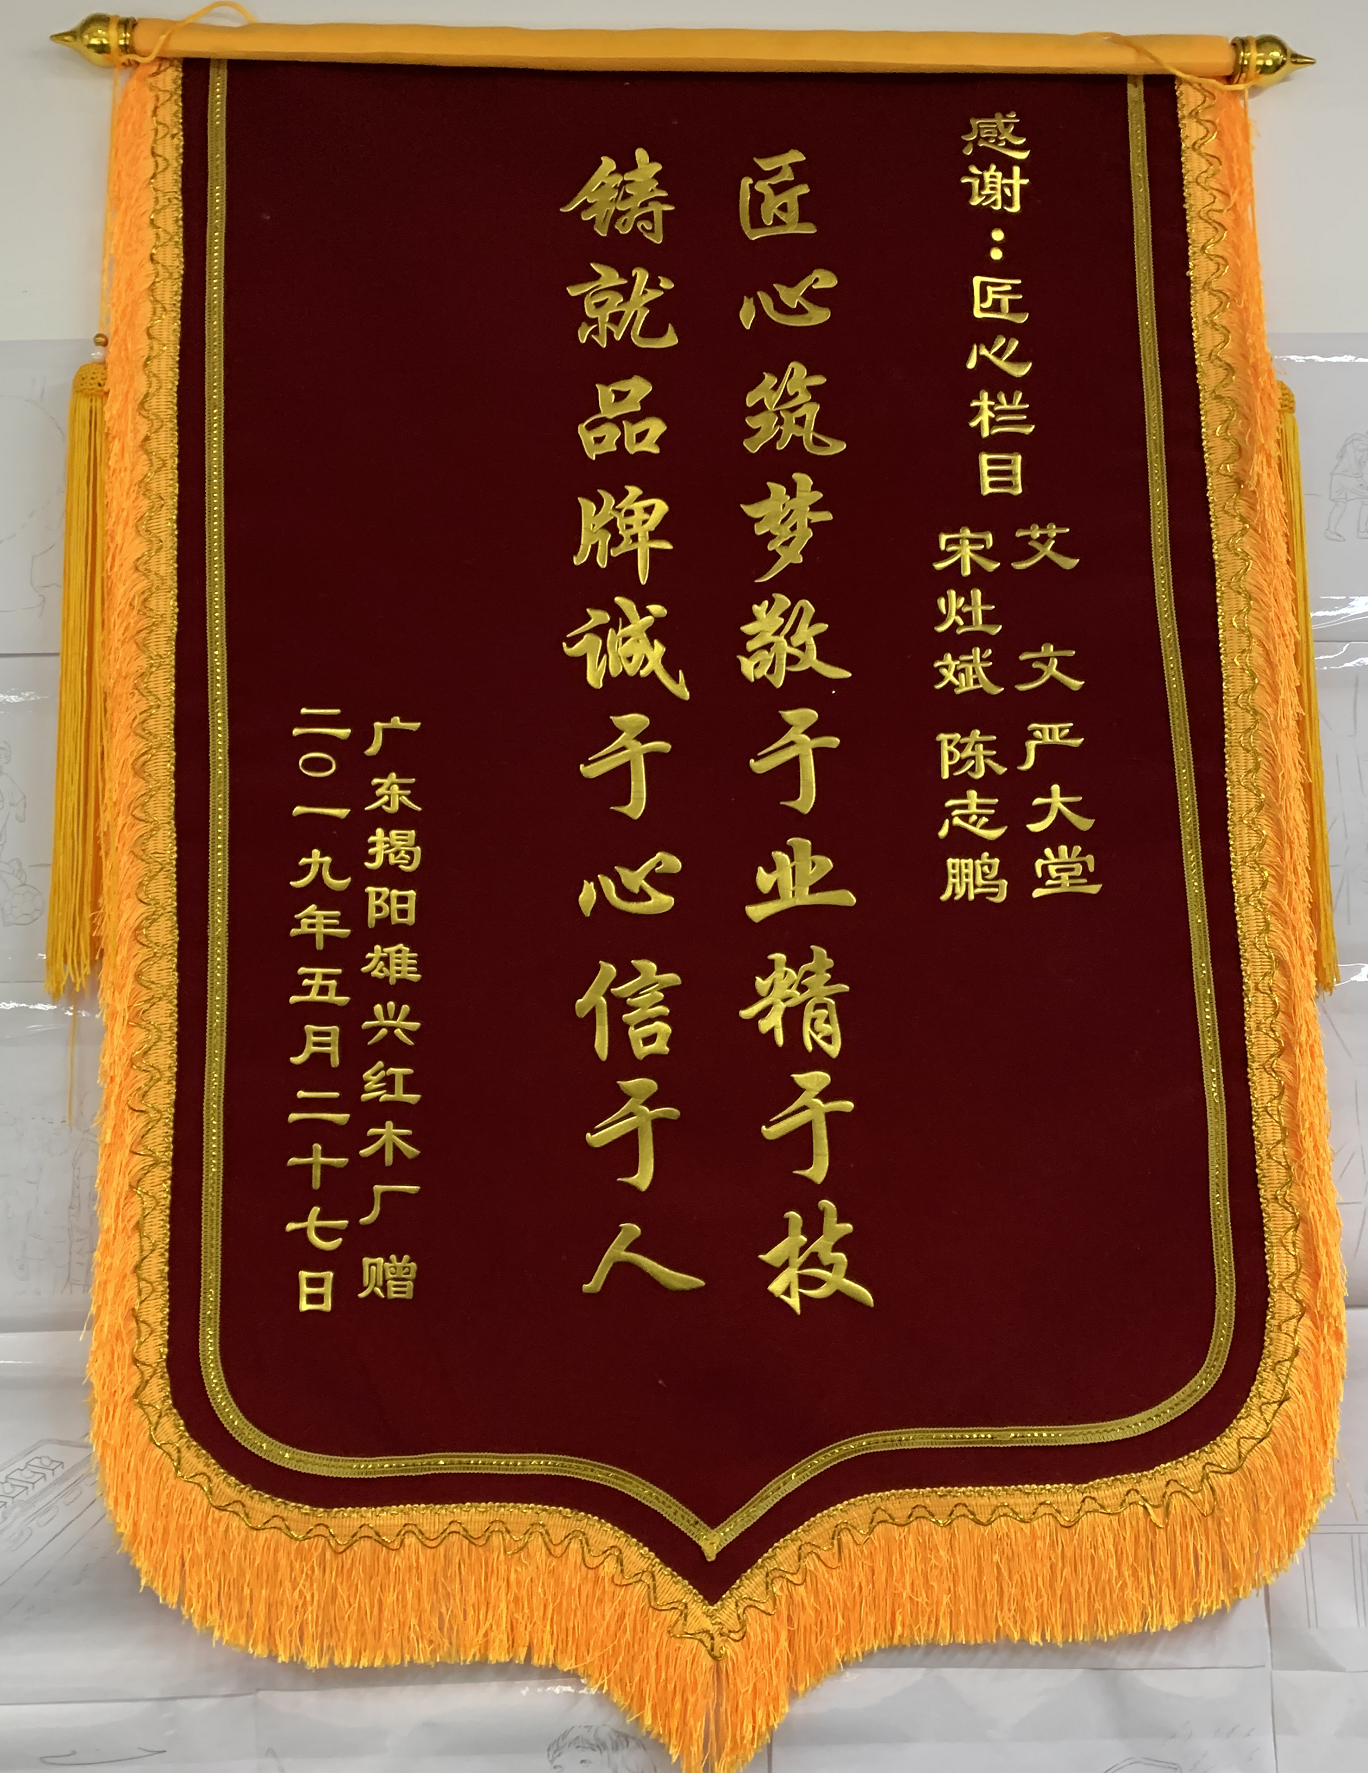 感谢：匠心栏目
艾文 严大堂
宋灶斌 陈志鹏
匠心筑梦敬于业精于技
铸就品牌诚于心信于人
广东揭阳雄兴红木厂 赠
二〇一九年五月二十七日